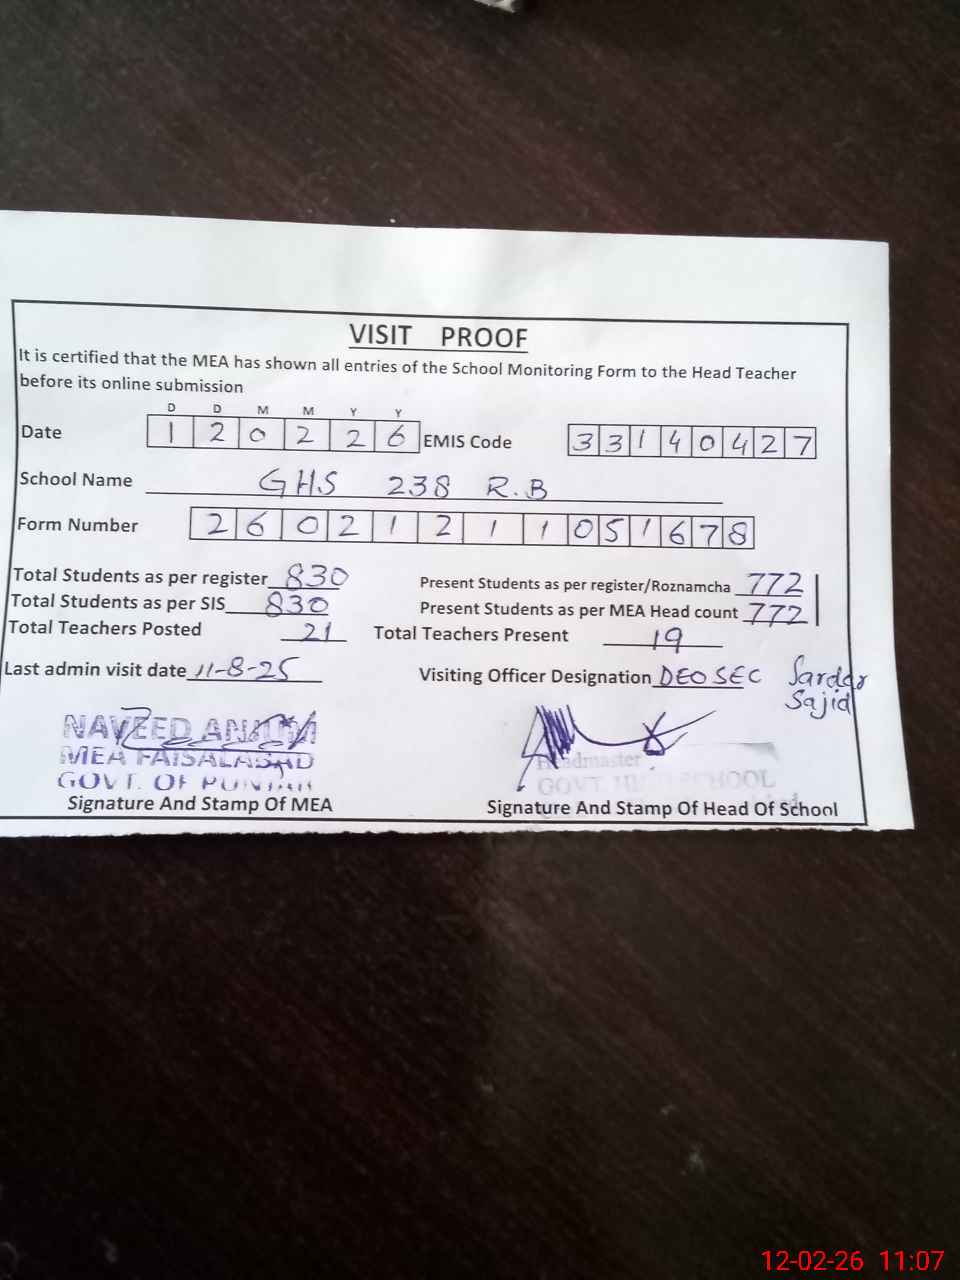 VISIT PROOF
It is certified that the MEA has shown all entries of the School Monitoring Form to the Head Teacher
before its online submission
D D M M Y Y
Date 1 2 0 2 2 6 EMIS Code 3 3 1 4 0 4 2 7
School Name GHS 238 R.B
Form Number 2 6 0 2 1 2 1 1 0 5 1 6 7 8
Total Students as per register 830 Present Students as per register/Roznamcha 772
Total Students as per SIS 830 Present Students as per MEA Head count 772
Total Teachers Posted 21 Total Teachers Present 19
Last admin visit date 11-8-25 Visiting Officer Designation DEO SEC Sardar
Sajid
NAVEED
MEA FAISALABAD Headmaster
GOVT. OF PUNJAB GOVT. SCHOOL
Signature And Stamp Of MEA Signature And Stamp Of Head Of School
12-02-26 11:07